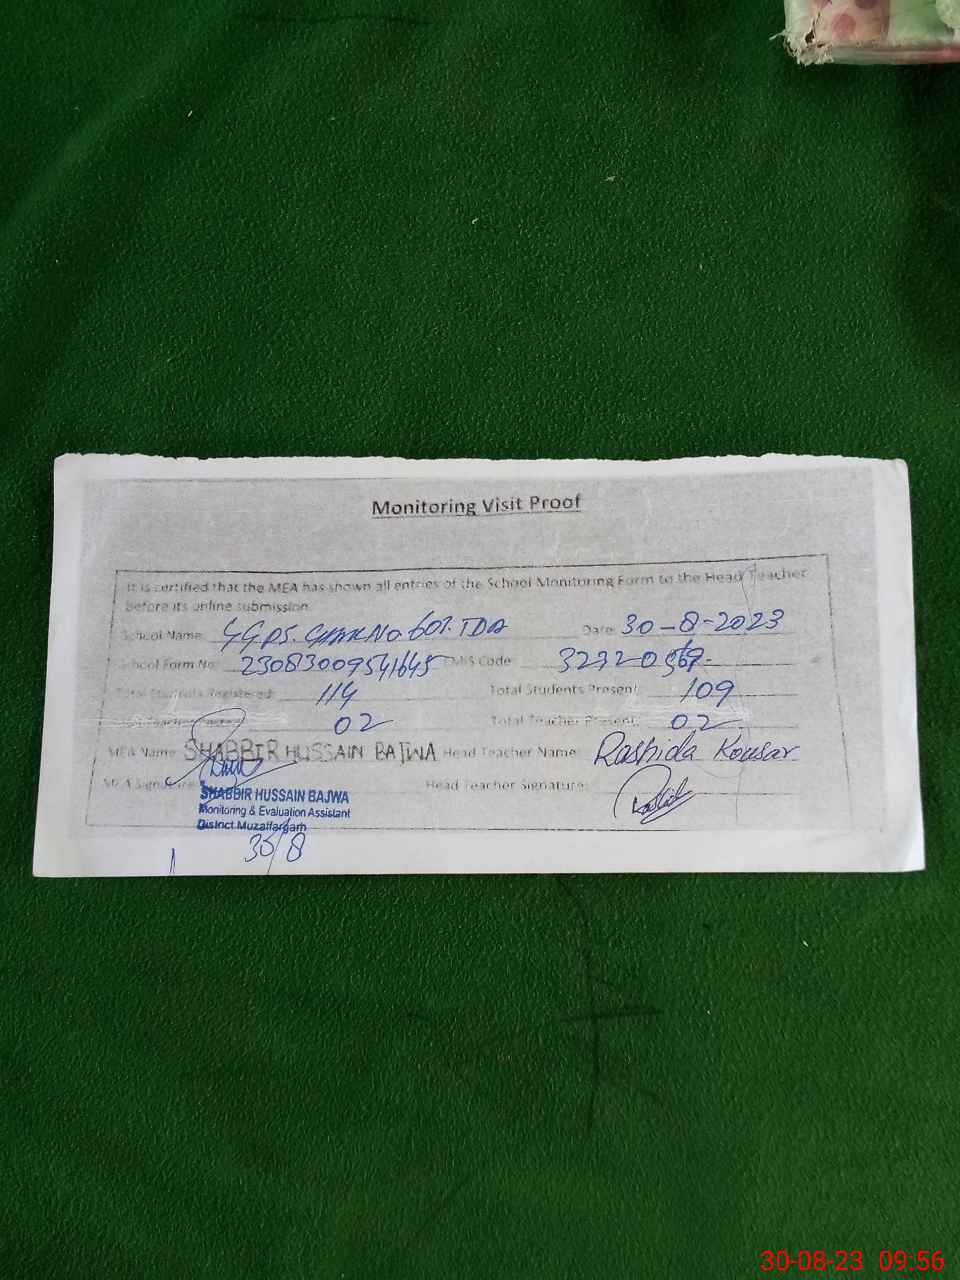 Monitoring Visit Proof
It is certified that the MEA has shown all entries of the School Monitoring Form to the Head Teacher
before its online submission.
School Name: GGPS. Chak No. 601. TDA Date: 30-8-2023
School Form No: 23083009541645 EMIS Code:
Total Students Registered: 114 Total Students Present: 109
02 Total Teacher Present: 02
MEA Name: SHABBIR HUSSAIN BAJWA Head Teacher Name: Rashida Kousar
MEA Signature: Head Teacher Signature:
SHABBIR HUSSAIN BAJWA
Monitoring & Evaluation Assistant
District Muzaffargarh
30/8
30-08-23 09:56